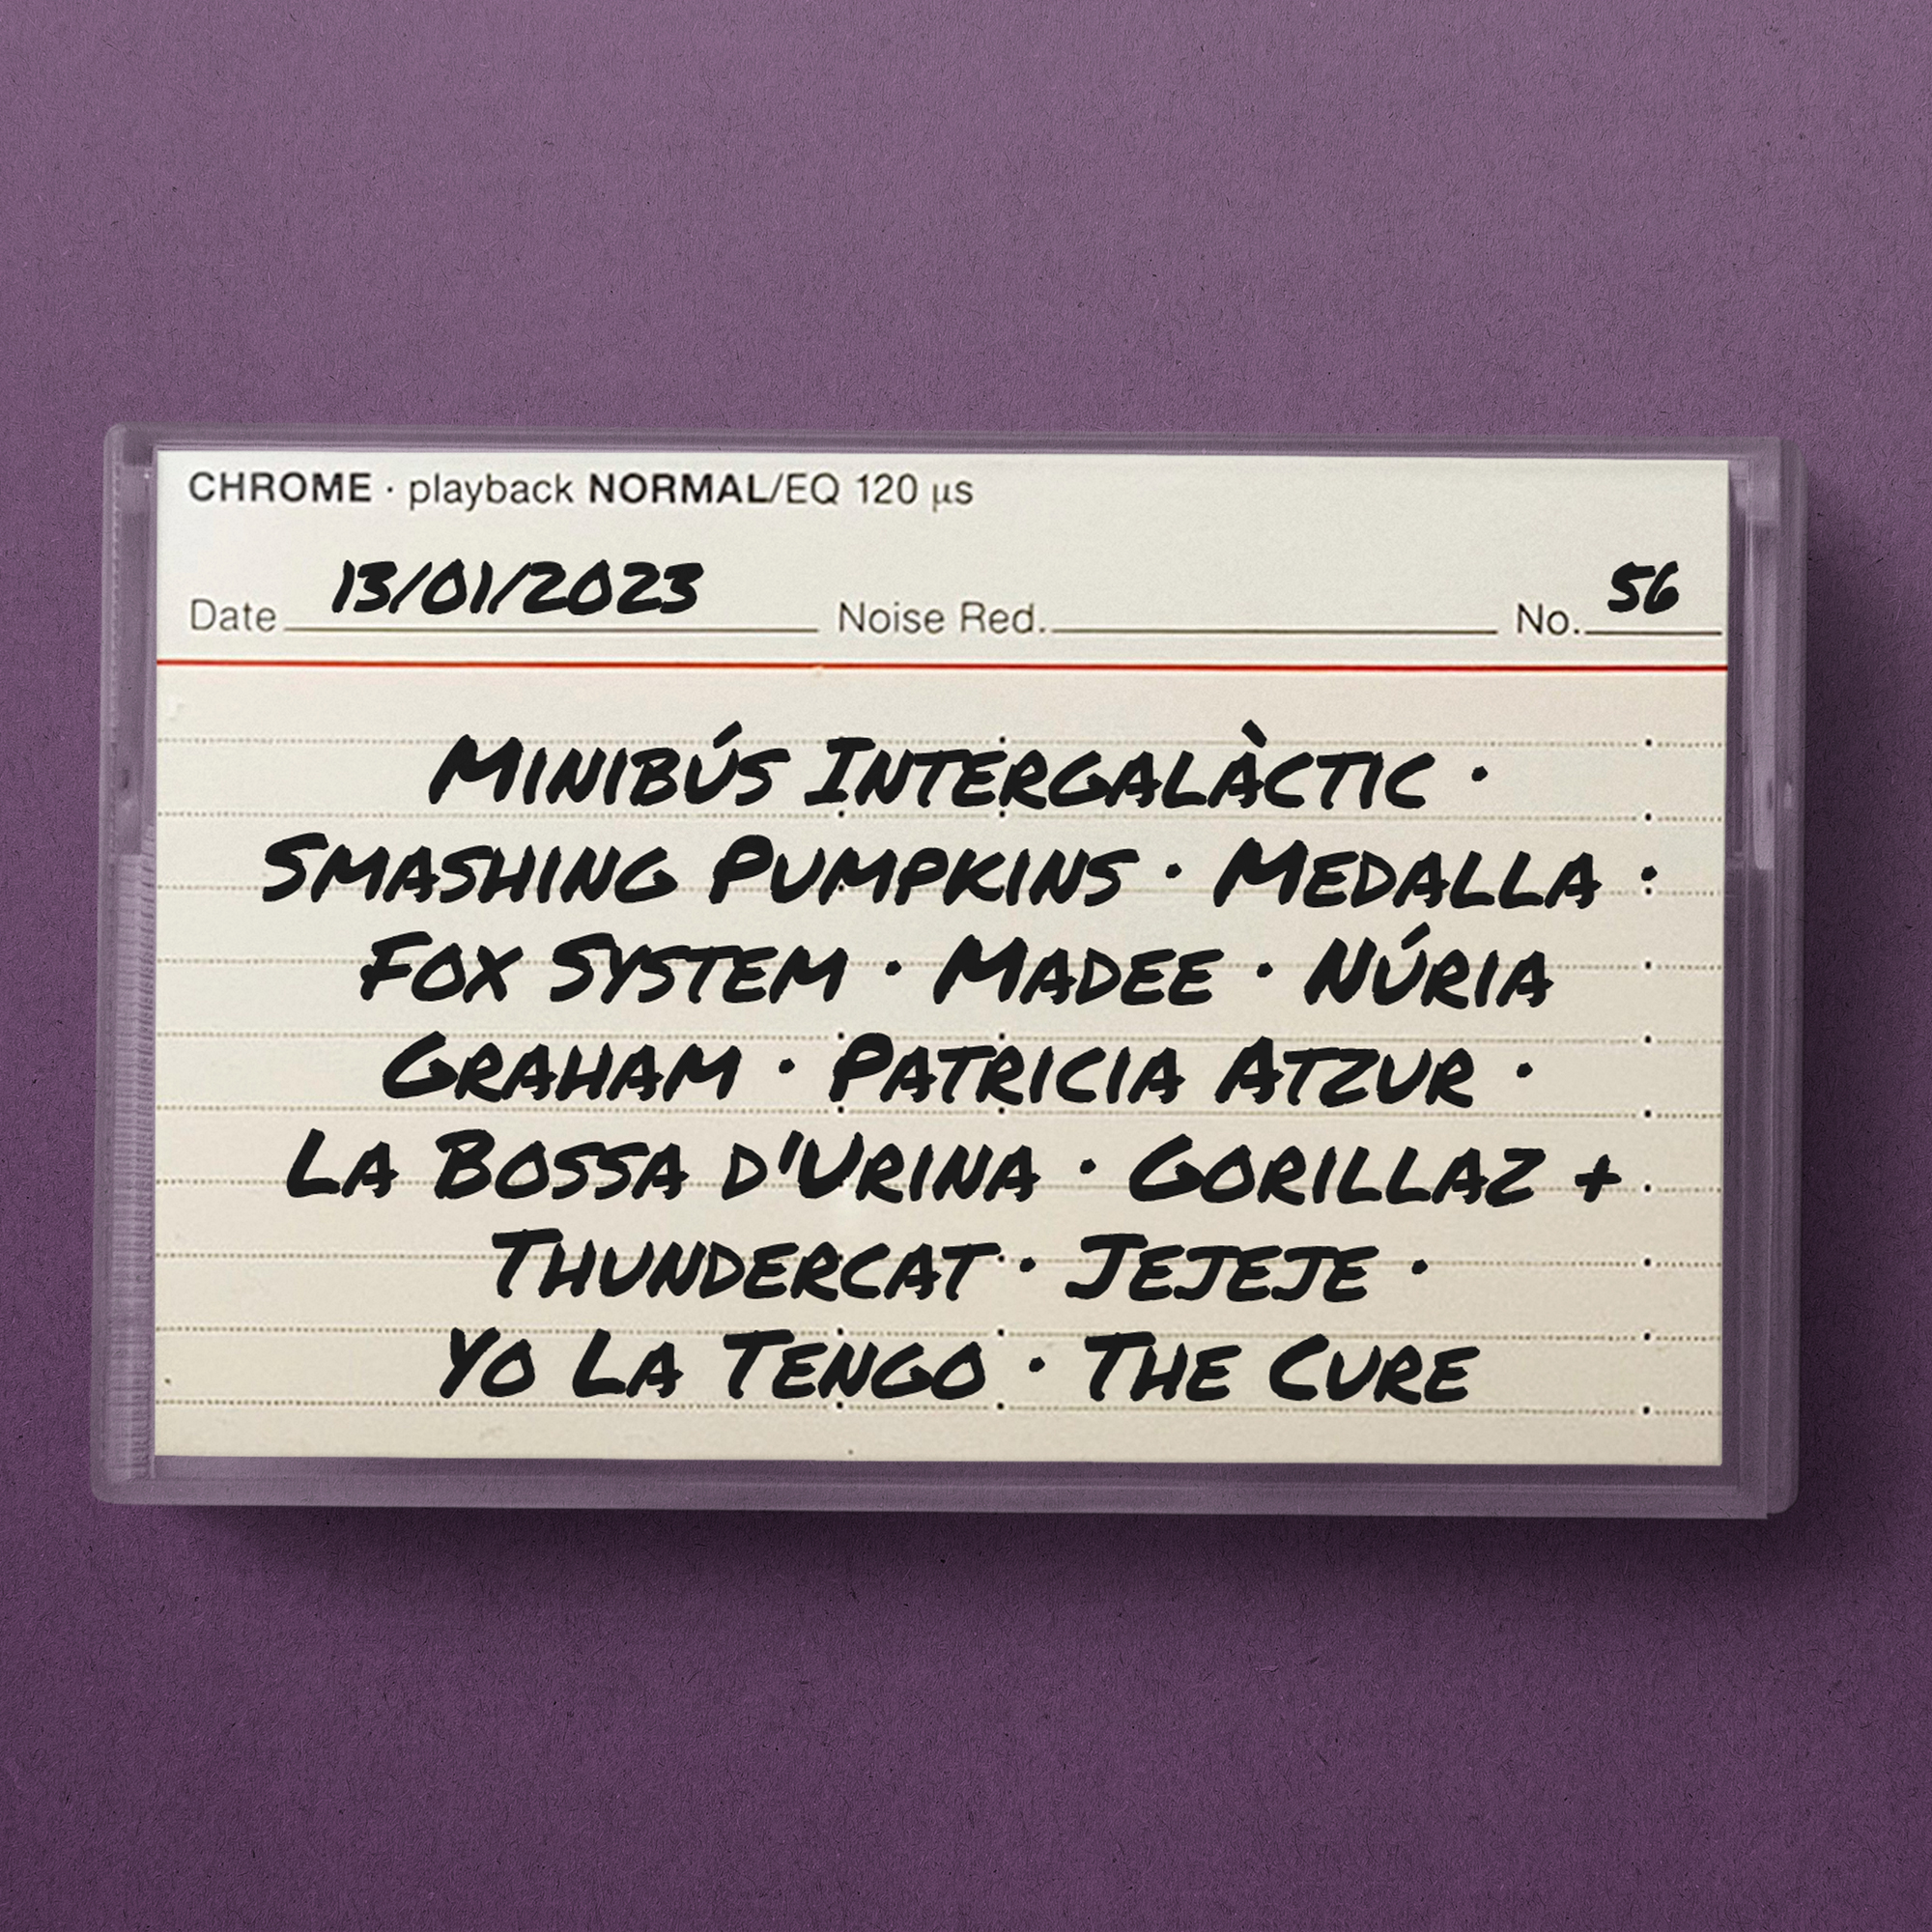 CHROME · playback NORMAL/EQ 120 µs
Date 13/01/2023 Noise Red. No. 56
MINIBÚS INTERGALÀCTIC ·
SMASHING PUMPKINS · MEDALLA ·
FOX SYSTEM · MADEE · NÚRIA
GRAHAM · PATRICIA ATZUR ·
LA BOSSA D'URINA · GORILLAZ +
THUNDERCAT · JEJEJE ·
YO LA TENGO · THE CURE